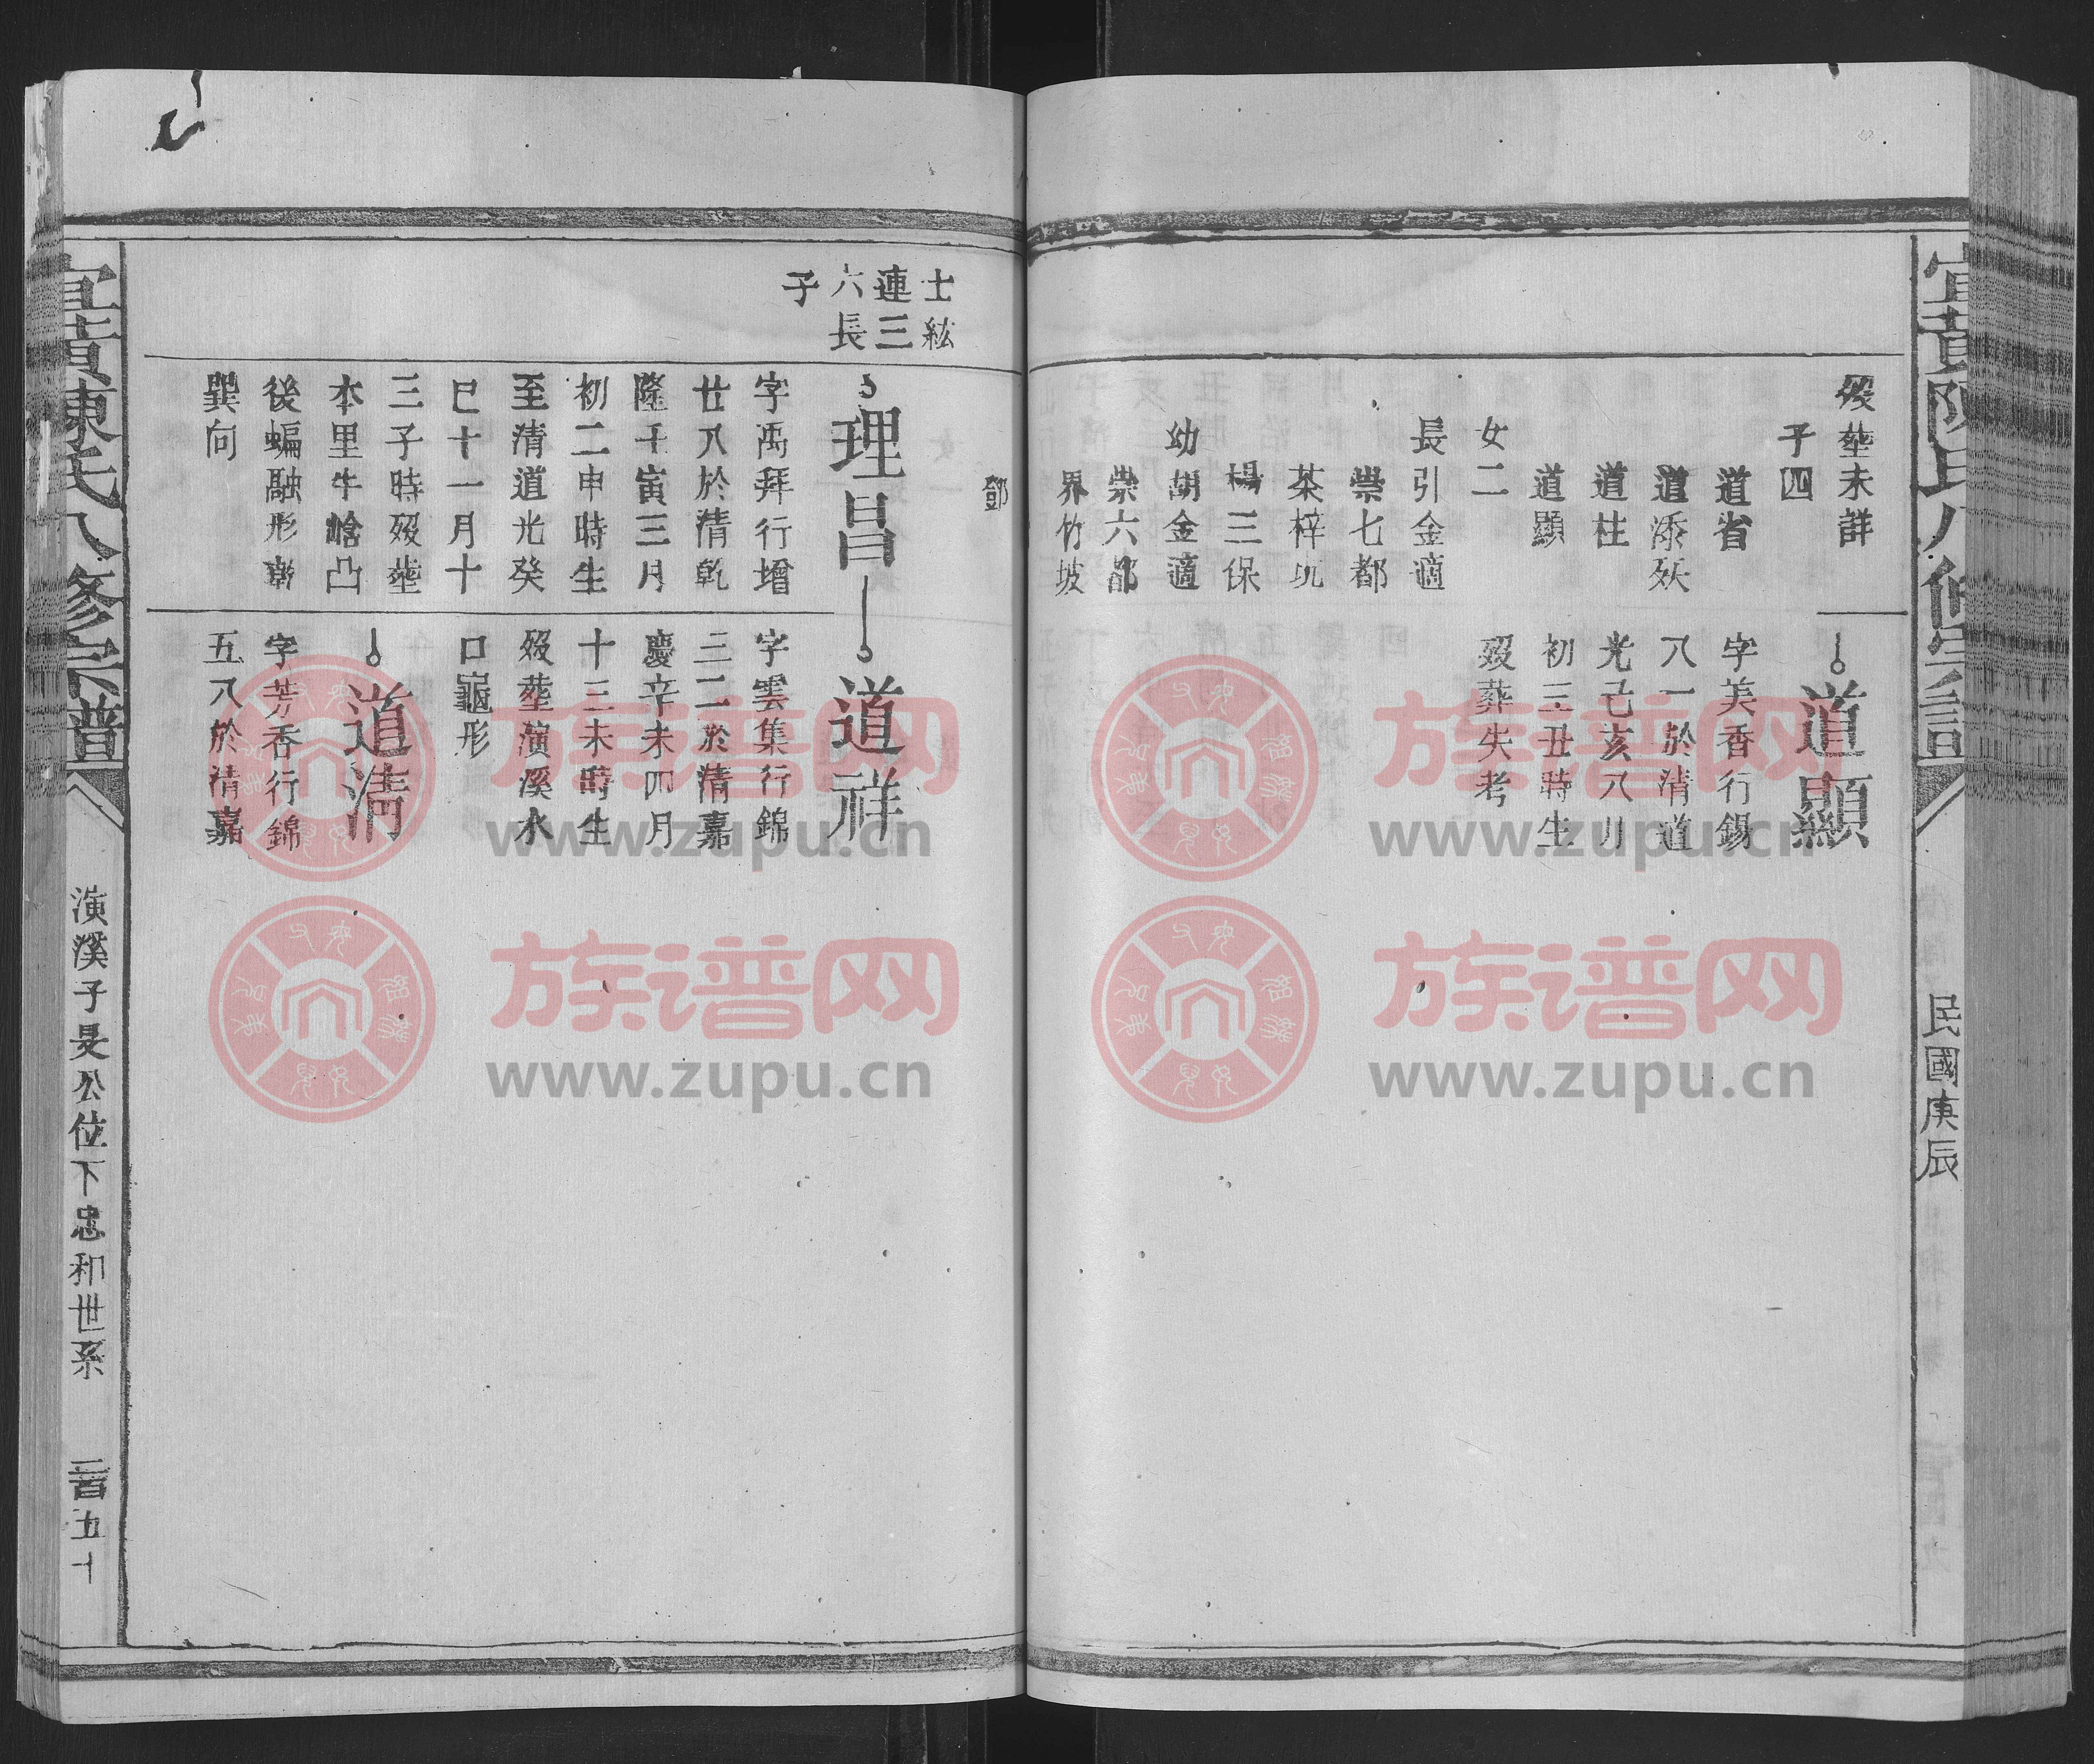 宜黃陳氏八修宗譜
民國庚辰
歿塟未詳
子四
道省
道添殀
道柱
道顯
女二
長引金適
崇七都
茶梓坑
楊三保
幼胡金適
崇六都
界竹坡
鄧
道顯
字美香行錫
八一於清道
光己亥八月
初三丑時生
歿葬失考
士紘
連三
六長
子
理昌
字禹拜行增
廿八於清乾
隆壬寅三月
初二申時生
至清道光癸
巳十一月十
三子時歿塟
本里牛凸
後蝙融形
巽向
道祥
字雲集行錦
三二於清嘉
慶辛未四月
十三未時生
歿塟演溪水
口龜形
道清
字芳香行錦
五八於清嘉
宜黃陳氏八修宗譜
演溪子旻公位下忠和世系
二百五十
族谱网
www.zupu.cn
族谱网
www.zupu.cn
族谱网
www.zupu.cn
族谱网
www.zupu.cn